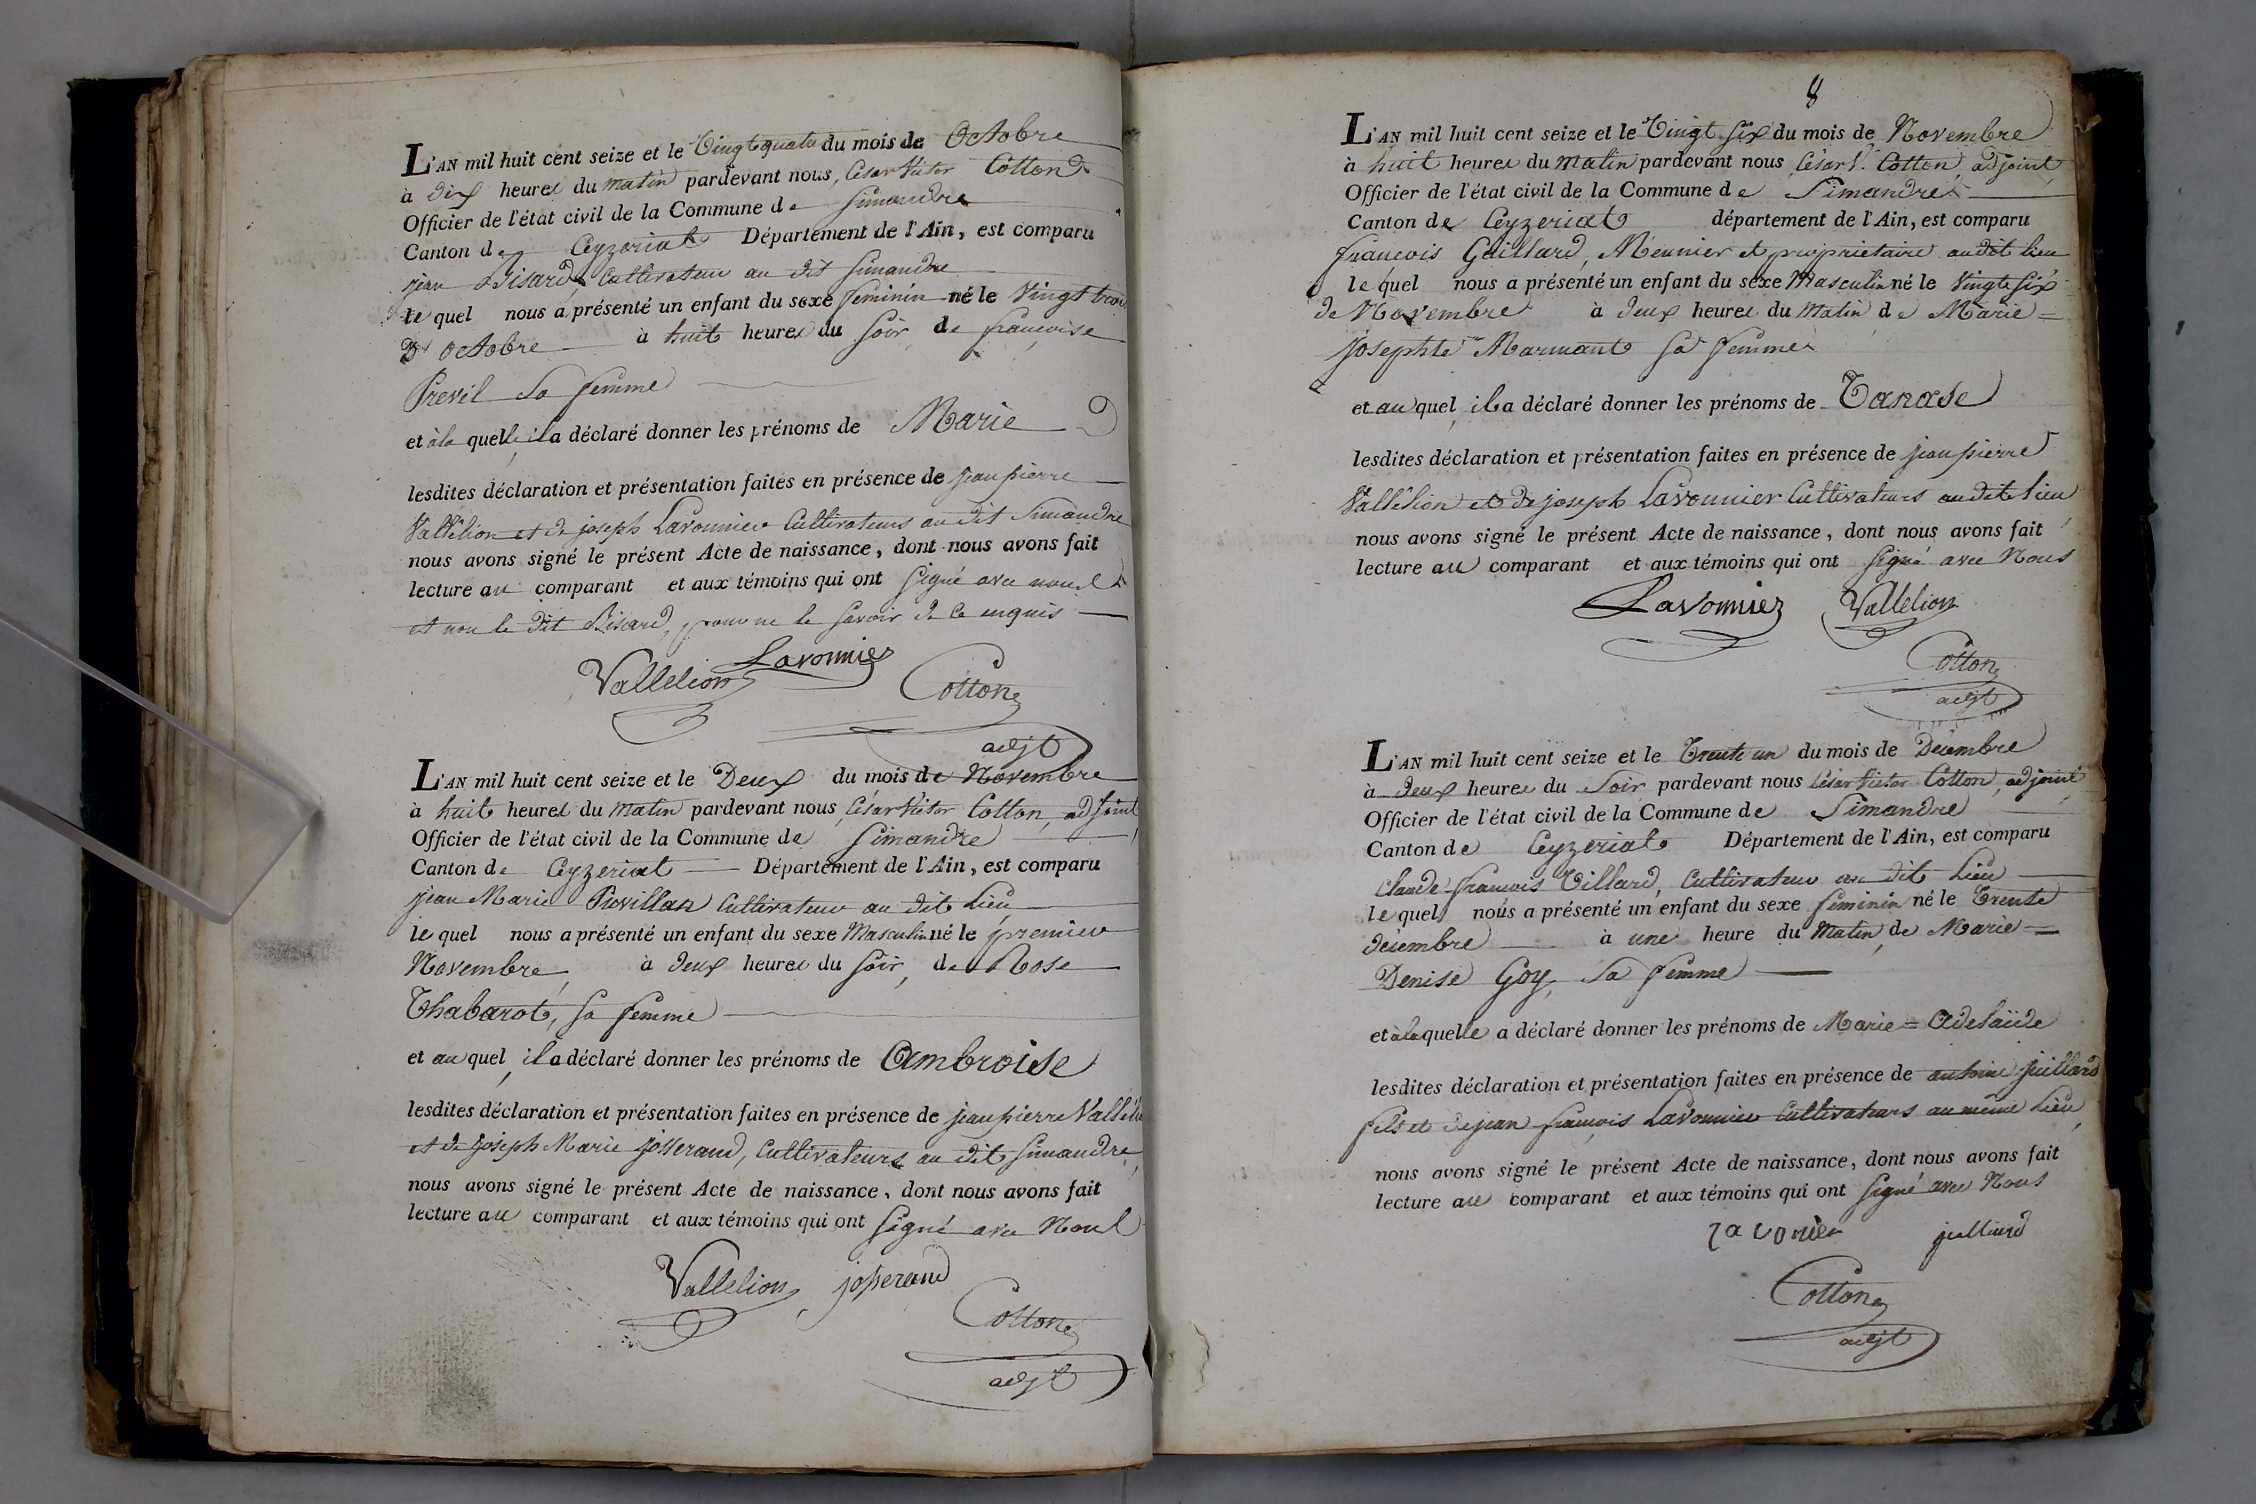 L'AN mil huit cent seize et le Vingt quatre du mois de Octobre
à dix heures du matin pardevant nous, César Victor Cotton
Officier de l'état civil de la Commune de Simandre
Canton de Ceyzeriat Département de l'Ain, est comparu
jean Bisard, Cultivateur au dit Simandre
lequel nous a présenté un enfant du sexe feminin né le Vingt trois
D'octobre à huit heures du Soir, de françoise
Previl Sa femme
et à la quelle, il a déclaré donner les prénoms de Marie
lesdites déclaration et présentation faites en présence de jean pierre
Vallélion et de joseph Lavonnier Cultivateurs au dit Simandre
nous avons signé le présent Acte de naissance, dont nous avons fait
lecture au comparant et aux témoins qui ont Signé avec nous
et non le dit Bisard, pour ne le Savoir de ce enquis
Vallelion Lavonnier Cotton
adjt
L'AN mil huit cent seize et le Deux du mois de Novembre
à huit heures du matin pardevant nous César Victor Cotton, adjoint,
Officier de l'état civil de la Commune de Simandre
Canton de Ceyzeriat Département de l'Ain, est comparu
jean Marie Provillan Cultivateur au dit Lieu
lequel nous a présenté un enfant du sexe Masculin né le premier
Novembre, à deux heures du Soir, de Rose
Chabarot, Sa femme
et au quel, il a déclaré donner les prénoms de Ambroise
lesdites déclaration et présentation faites en présence de jean pierre Vallélion
et de joseph Marie josserand, Cultivateurs au dit Simandre,
nous avons signé le présent Acte de naissance, dont nous avons fait
lecture au comparant et aux témoins qui ont Signé avec Nous
Vallelion josserand
Cotton
adjt
8
L'AN mil huit cent seize et le Vingt Six du mois de Novembre
à huit heures du matin pardevant nous César V. Cotton, adjoint,
Officier de l'état civil de la Commune de Simandre
Canton de Ceyzeriat département de l'Ain, est comparu
françois Gaillard, Meunier et proprietaire au dit lieu
lequel nous a présenté un enfant du sexe Masculin né le Vingt Six
de Novembre à deux heures du Matin de Marie =
Josephte Marmant Sa femme
et au quel, il a déclaré donner les prénoms de Tanase
lesdites déclaration et présentation faites en présence de jean pierre
Vallélion et de joseph Lavonnier Cultivateurs au dit lieu
nous avons signé le présent Acte de naissance, dont nous avons fait
lecture au comparant et aux témoins qui ont Signé avec Nous
Lavonnier Vallelion
Cotton
adjt
L'AN mil huit cent seize et le Trente un du mois de Décembre
à deux heures du Soir pardevant nous César Victor Cotton, adjoint,
Officier de l'état civil de la Commune de Simandre
Canton de Ceyzeriat Département de l'Ain, est comparu
Claude françois Tillard, Cultivateur au dit Lieu
lequel nous a présenté un enfant du sexe féminin né le Trente
décembre à une heure du Matin, de Marie =
Denise Goy, Sa femme
et à la quelle a déclaré donner les prénoms de Marie = Adelaïde
lesdites déclaration et présentation faites en présence de antoine juillard
fils et de jean françois Lavonnier Cultivateurs au même Lieu,
nous avons signé le présent Acte de naissance, dont nous avons fait
lecture au comparant et aux témoins qui ont Signé avec Nous
Lavonier juilliard
Cotton
adjt